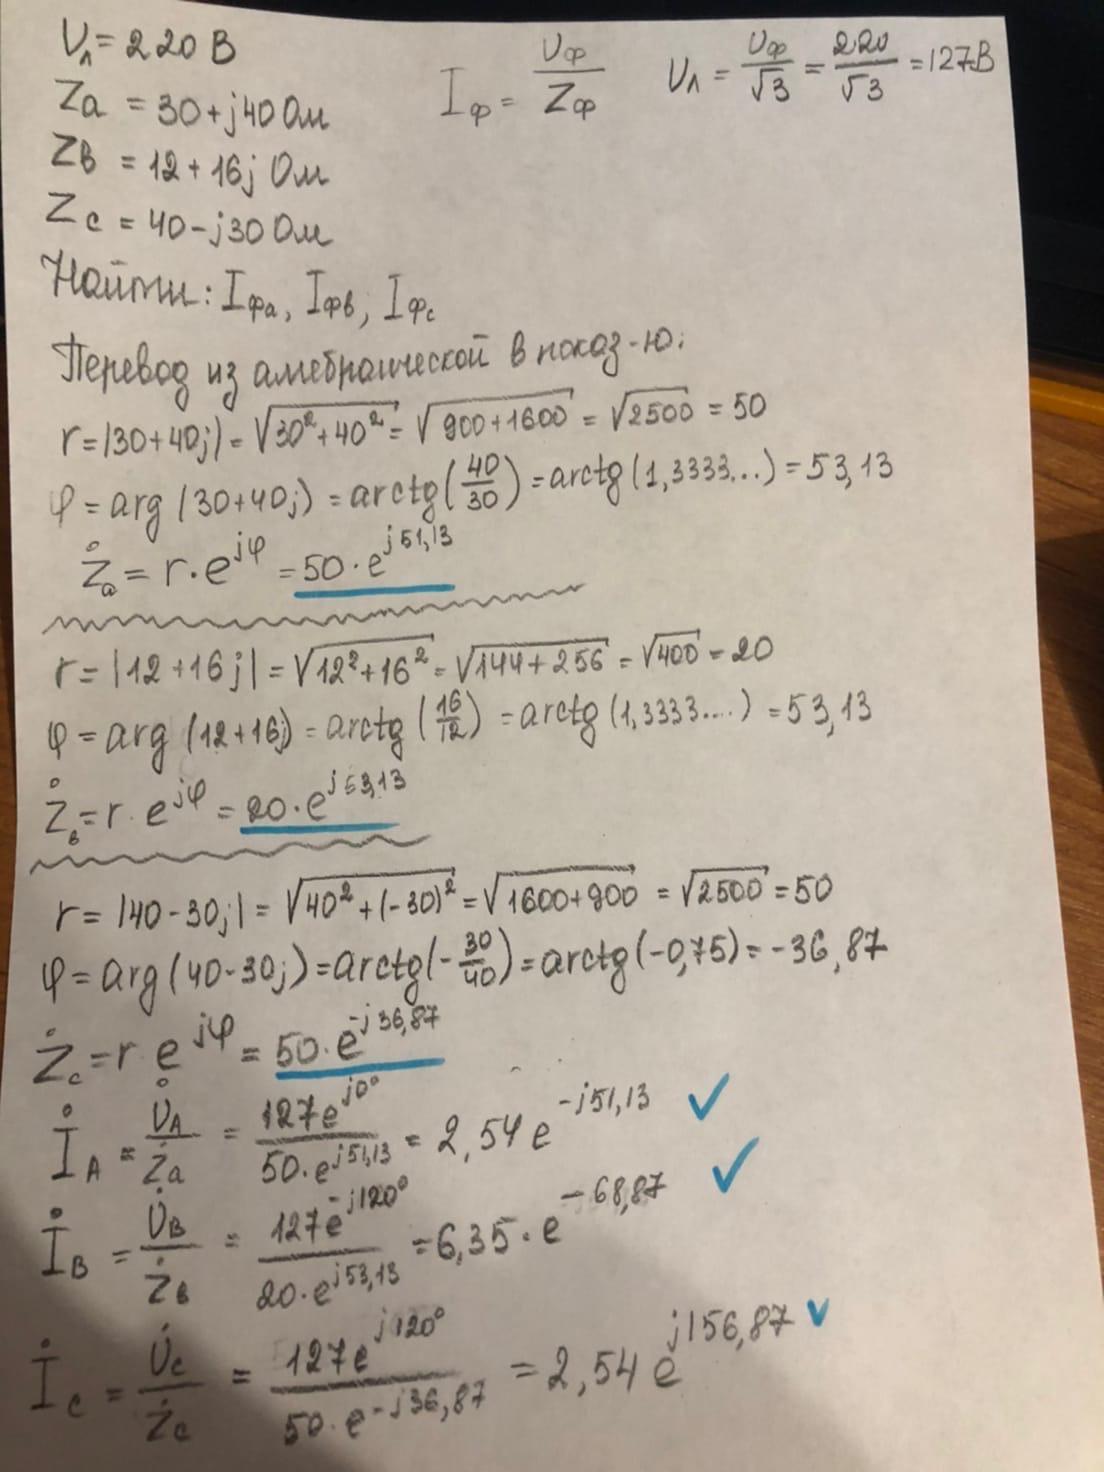 Uл = 220 В
Iф = Uф/Zф   Uл = Uф/√3 = 220/√3 = 127В
Za = 30 + j40 Ом
Zв = 12 + 16j Ом
Zc = 40 - j30 Ом
Найти: Iфа, Iфв, Iфс
Перевод из алгебраической в показ-ю:
r = |30+40j| = √30²+40² = √900+1600 = √2500 = 50
φ = arg (30+40j) = arctg(40/30) = arctg (1,3333...) = 53,13
Żа = r·e^jφ = 50·e^j51,13
r = |12+16j| = √12²+16² = √144+256 = √400 = 20
φ = arg (12+16j) = arctg (16/12) = arctg (1,3333....) = 53,13
Żв = r·e^jφ = 20·e^j53,13
r = |40-30j| = √40²+(-30)² = √1600+900 = √2500 = 50
φ = arg(40-30j) = arctg(-30/40) = arctg(-0,75) = -36,87
Żc = r e^jφ = 50·e^-j36,87
İA = U̇A/Ża = 127e^j0°/50·e^j51,13 = 2,54 e^-j51,13 ✓
İB = U̇B/Żв = 127e^-j120°/20·e^j53,13 = 6,35·e^-68,87 ✓
İC = U̇C/ŻC = 127e^j120°/50·e^-j36,87 = 2,54 e^j156,87 ✓